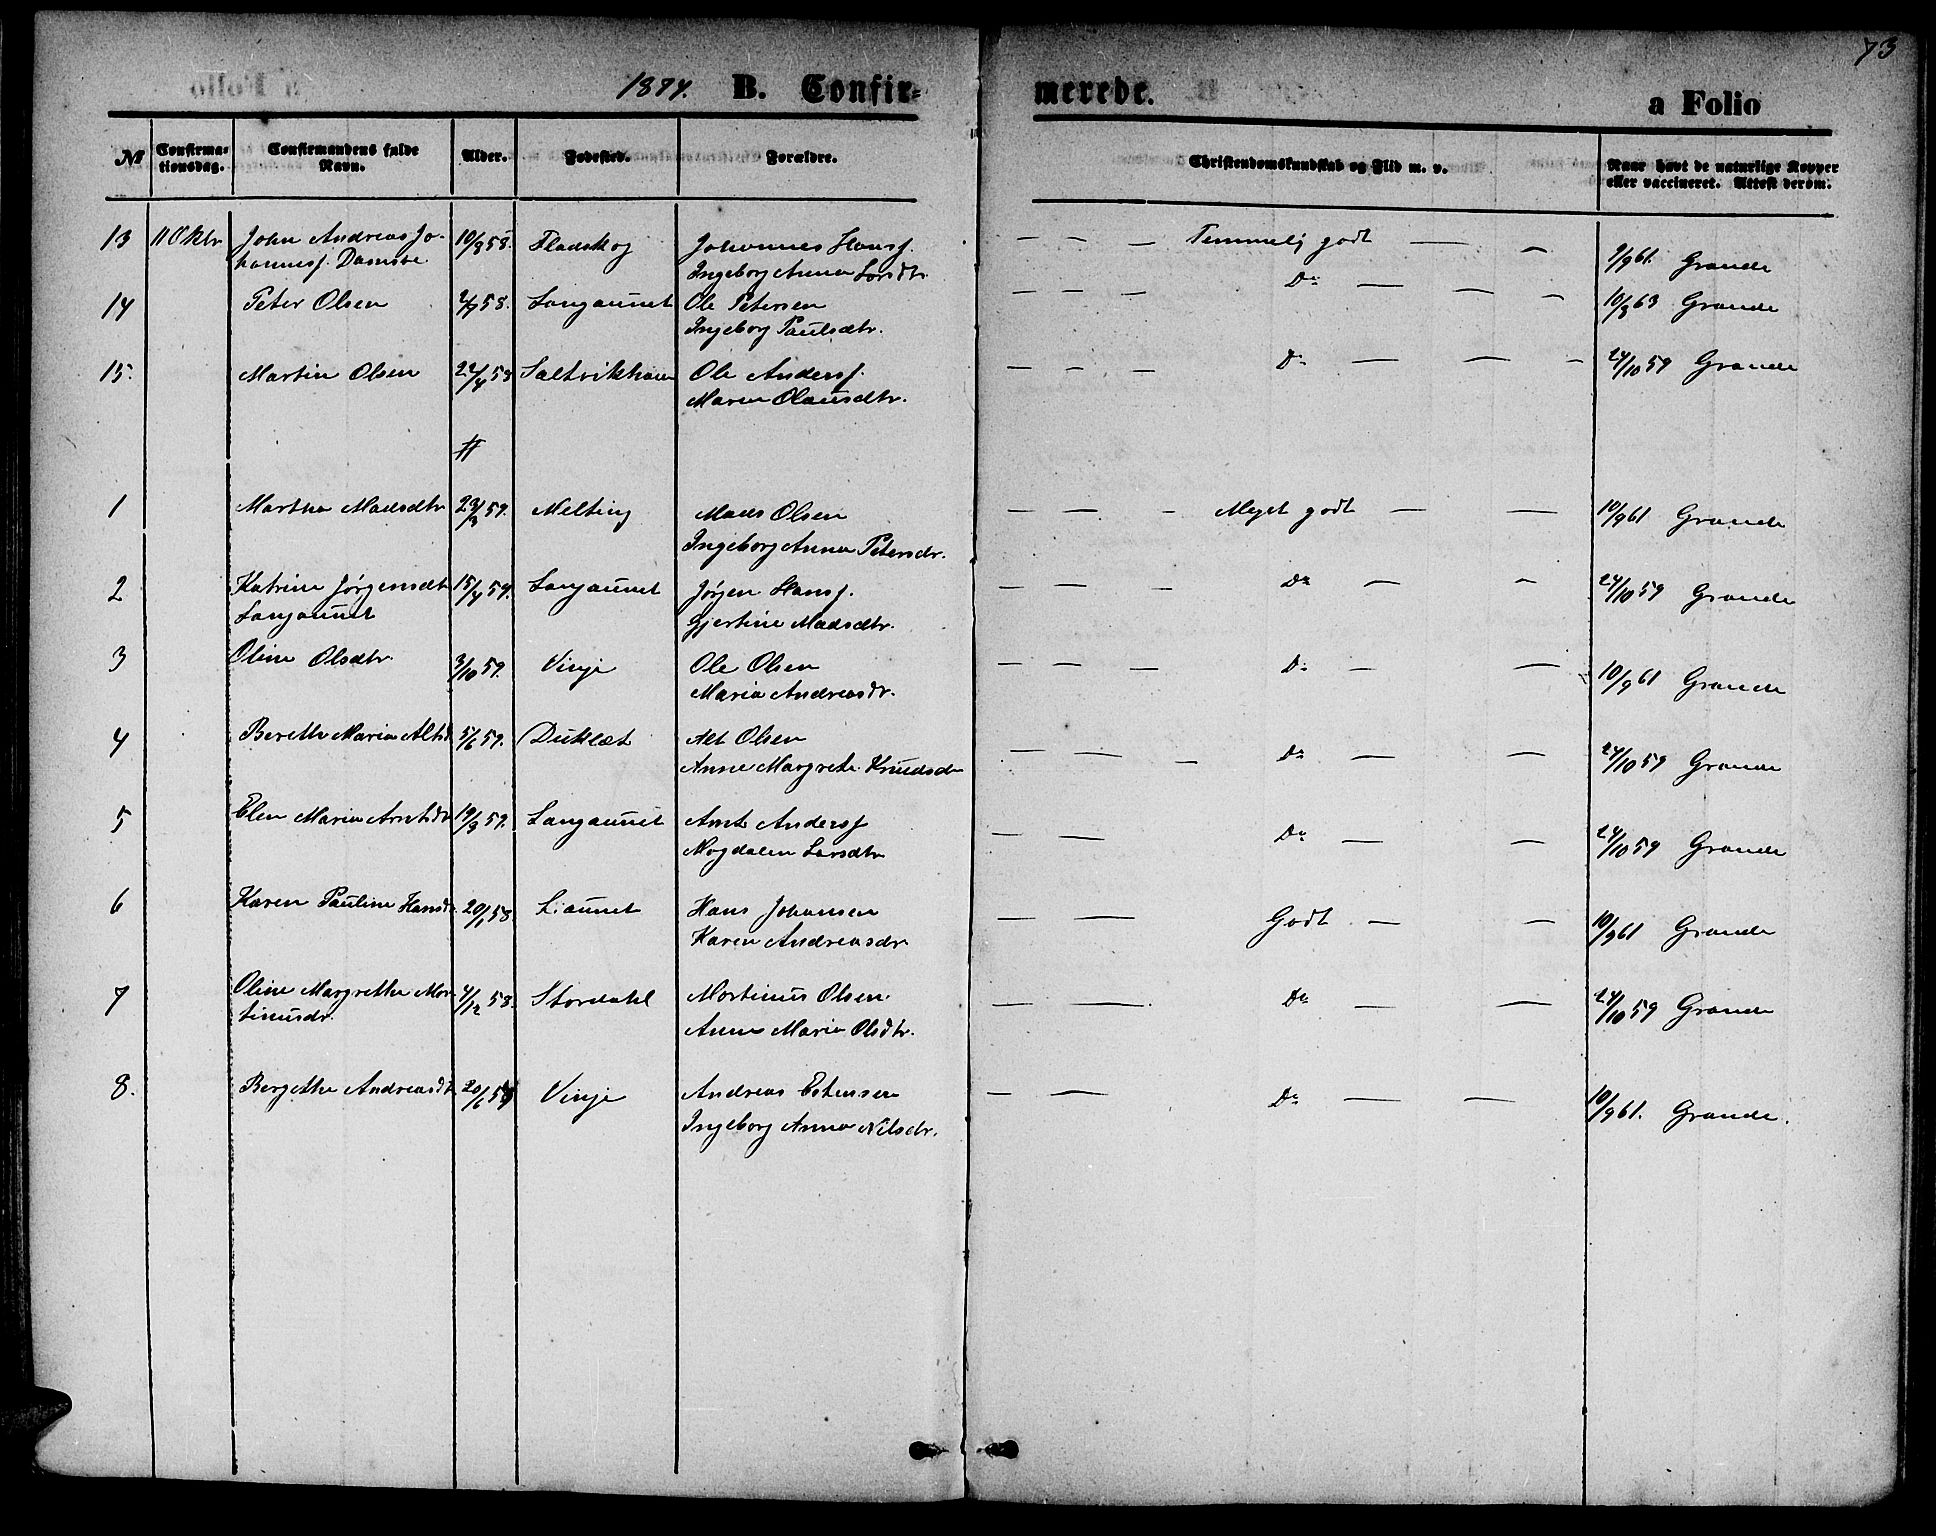 73
1874. B. Confir-
merede.
a Folio
№ Confirma-tionsdag. Confirmandens fulde Navn. Alder. Fødested. Forældre. Christendomskundskab og Flid m. v. Naar havt de naturlige Kopper eller vaccineret. Attest derom.
13 11 Oktbr John Andreas Jo- 10/8 58. Fladskog Johannes Hansf. — — — Temmelig godt — — 9/9 61. Grande
hannesf. Damsve Ingeborg Anna Larsdtr.
14 Peter Olsen 2/7 58. Langaunet Ole Petersen — — — Do — — — 10/8 63 Grande
Ingeborg Paulsdtr.
15. Martin Olsen 22/4 58 Saltvikhaun Ole Andersf. — — — Do — — — 24/10 59 Grande
Maren Olausdtr.
#
1 Martha Madsdtr 23/3 59. Melting Mads Olsen — — — Meget godt — — 10/9 61 Grande
Ingeborg Anna Petersdr.
2 Katrine Jørgensdt 15/4 59. Langaunet Jørgen Hansf. — — — Do — — 24/10 59 Grande
Langaunet Gjertine Madsdtr.
3 Oline Olsdtr. 3/10 59. Vinje Ole Olsen — — — Do — — 10/9 61 Grande
Maria Andreasdr.
4 Berethe Maria Altsd. 5/6 59. Duklæt Alt Olsen — — — Do — — 24/10 59 Grande
Anne Margrete Knudsdr
5 Elen Maria Arntsdr 19/3 59. Langaunet Arnt Andersf — — Do — — 24/10 59 Grande
Magdalen Larsdtr
6 Karen Pauline Hansdr. 20/1 58 Liaunet Hans Johansen — — Godt — — 10/9 61 Grande
Karen Andreasdr
7 Oline Margrethe Mor- 4/12 58. Stordahl Mortinus Olsen. — — Do — — 24/10 59 Grande
tinusdr. Anne Maria Olsdtr.
8. Bergethe Andreasdt 20/6 59 Vinje Andreas Estensen — — Do — — 10/9 61. Grande.
Ingeborg Anna Nilsdr.